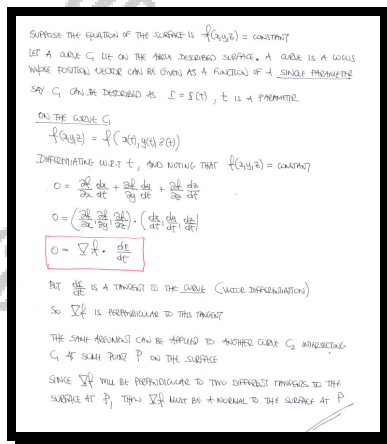 SUPPOSE THE EQUATION OF THE SURFACE IS f(x,y,z) = CONSTANT
LET A CURVE C₁ LIE ON THE ABOVE DESCRIBED SURFACE. A CURVE IS A LOCUS
WHOSE POSITION VECTOR CAN BE GIVEN AS A FUNCTION OF A SINGLE PARAMETER
SAY C₁ CAN BE DESCRIBED AS r = r(t) , t IS A PARAMETER
ON THE CURVE C₁
f(x,y,z) = f(x(t), y(t), z(t))
DIFFERENTIATING W.R.T t, AND NOTING THAT f(x,y,z) = CONSTANT
0 = ∂f/∂x dx/dt + ∂f/∂y dy/dt + ∂f/∂z dz/dt
0 = (∂f/∂x, ∂f/∂y, ∂f/∂z) · (dx/dt, dy/dt, dz/dt)
0 = ∇f · dr/dt
BUT dr/dt IS A TANGENT TO THE CURVE (VECTOR DIFFERENTIATION)
SO ∇f IS PERPENDICULAR TO THIS TANGENT
THE SAME ARGUMENT CAN BE APPLIED TO ANOTHER CURVE C₂ INTERSECTING
C₁ AT SOME POINT P ON THE SURFACE
SINCE ∇f WILL BE PERPENDICULAR TO TWO DIFFERENT TANGENTS TO THE
SURFACE AT P, THEN ∇f MUST BE A NORMAL TO THE SURFACE AT P